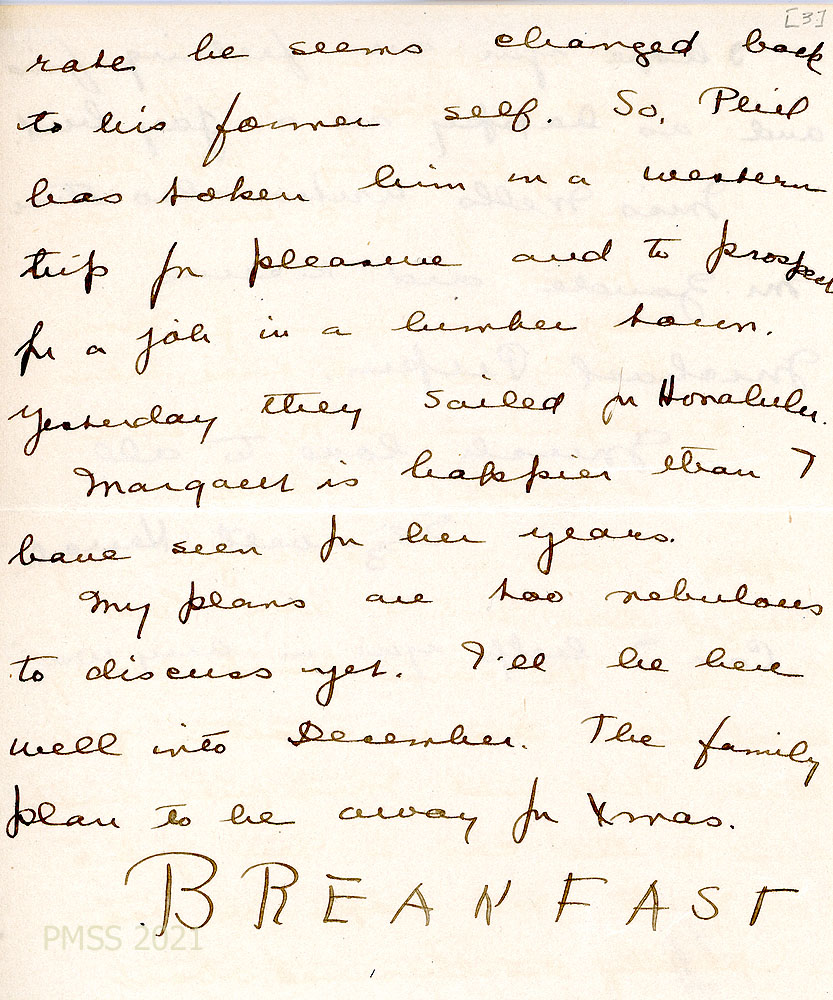 [3]
rate he seems changed back
to his former self. So, Phil
has taken him on a western
trip for pleasure and to prospect
for a job in a lumber town.
Yesterday they sailed for Honalulu.
Margaret is happier than I
have seen for her years.
My plans are too nebulous
to discuss yet. I'll be here
well into December. The family
plan to be away for Xmas.
BREAKFAST
PMSS 2021